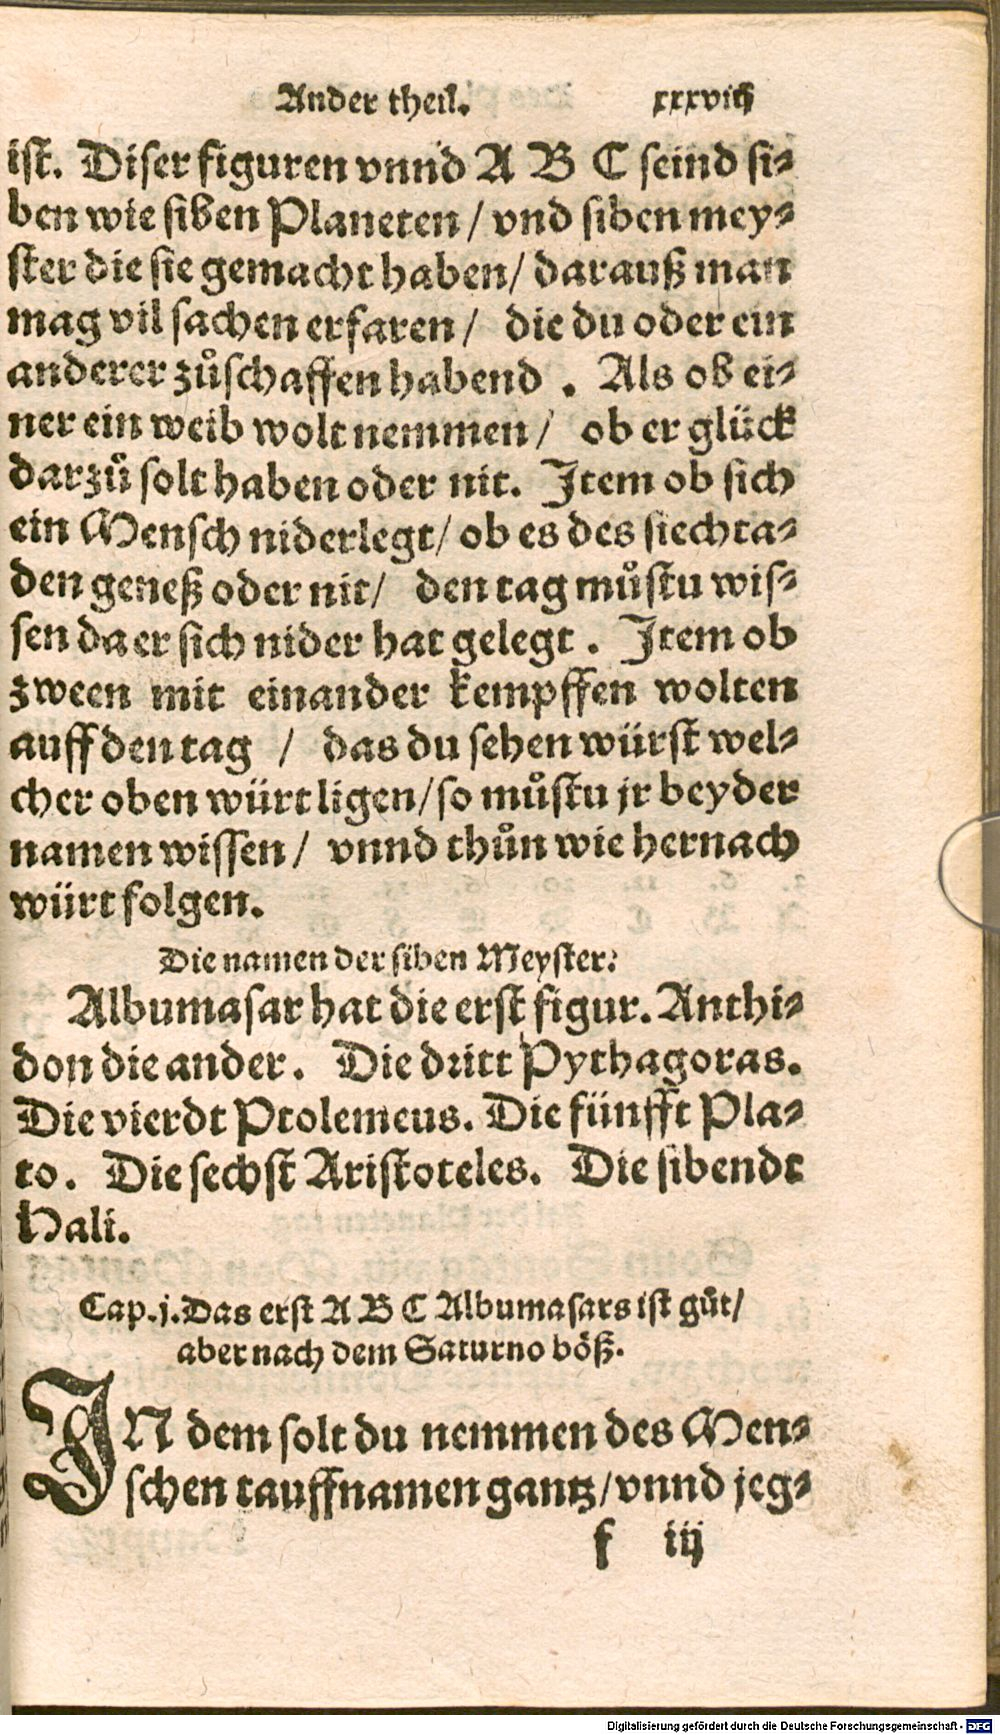 Ander theil. xxxviij
ist. Diser figuren vnnd A B C seind si⸗
ben wie siben Planeten / vnd siben mey⸗
ster die sie gemacht haben / darauß man
mag vil sachen erfaren / die du oder ein
anderer zůschaffen habend . Als ob ei⸗
ner ein weib wolt nemmen / ob er glück
darzů solt haben oder nit. Item ob sich
ein Mensch niderlegt / ob es des siechta⸗
den geneß oder nit / den tag můstu wis⸗
sen da er sich nider hat gelegt . Item ob
zween mit einander kempffen wolten
auff den tag / das du sehen würst wel⸗
cher oben würt ligen / so můstu jr beyder
namen wissen / vnnd thůn wie hernach
würt folgen.
Die namen der siben Meyster:
Albumasar hat die erst figur. Anthi⸗
don die ander. Die dritt Pythagoras.
Die vierdt Ptolemeus. Die fünfft Pla⸗
to. Die sechst Aristoteles. Die sibendt
Hali.
Cap. j. Das erst A B C Albumasars ist gůt /
aber nach dem Saturno böß.
IN dem solt du nemmen des Men⸗
schen tauffnamen gantz / vnnd jeg⸗
f iij
Digitalisierung gefördert durch die Deutsche Forschungsgemeinschaft - DFG